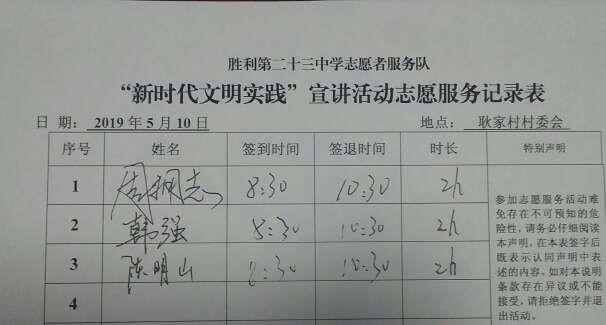 胜利第二十三中学志愿者服务队
“新时代文明实践”宣讲活动志愿服务记录表
日 期: 2019 年 5 月 10 日 地点: 耿家村村委会
序号 姓名 签到时间 签退时间 时长 特别声明
1 周佩志 8:30 10:30 2h
2 韩强 8:30 10:30 2h
3 陈明山 8:30 10:30 2h
4
参加志愿服务活动难
免存在不可预知的危
险性,请务必仔细阅读
本声明,在本表签字后
既表示认同声明中表
述的内容。如对本说明
条款存在异议或不能
接受,请拒绝签字并退
出活动。